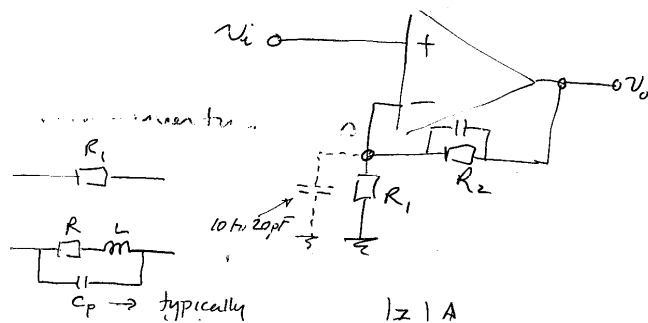 Vi
+
−
Vo
R1
R2
R1
10 to 20pF
R L
Cp → typically
|z|